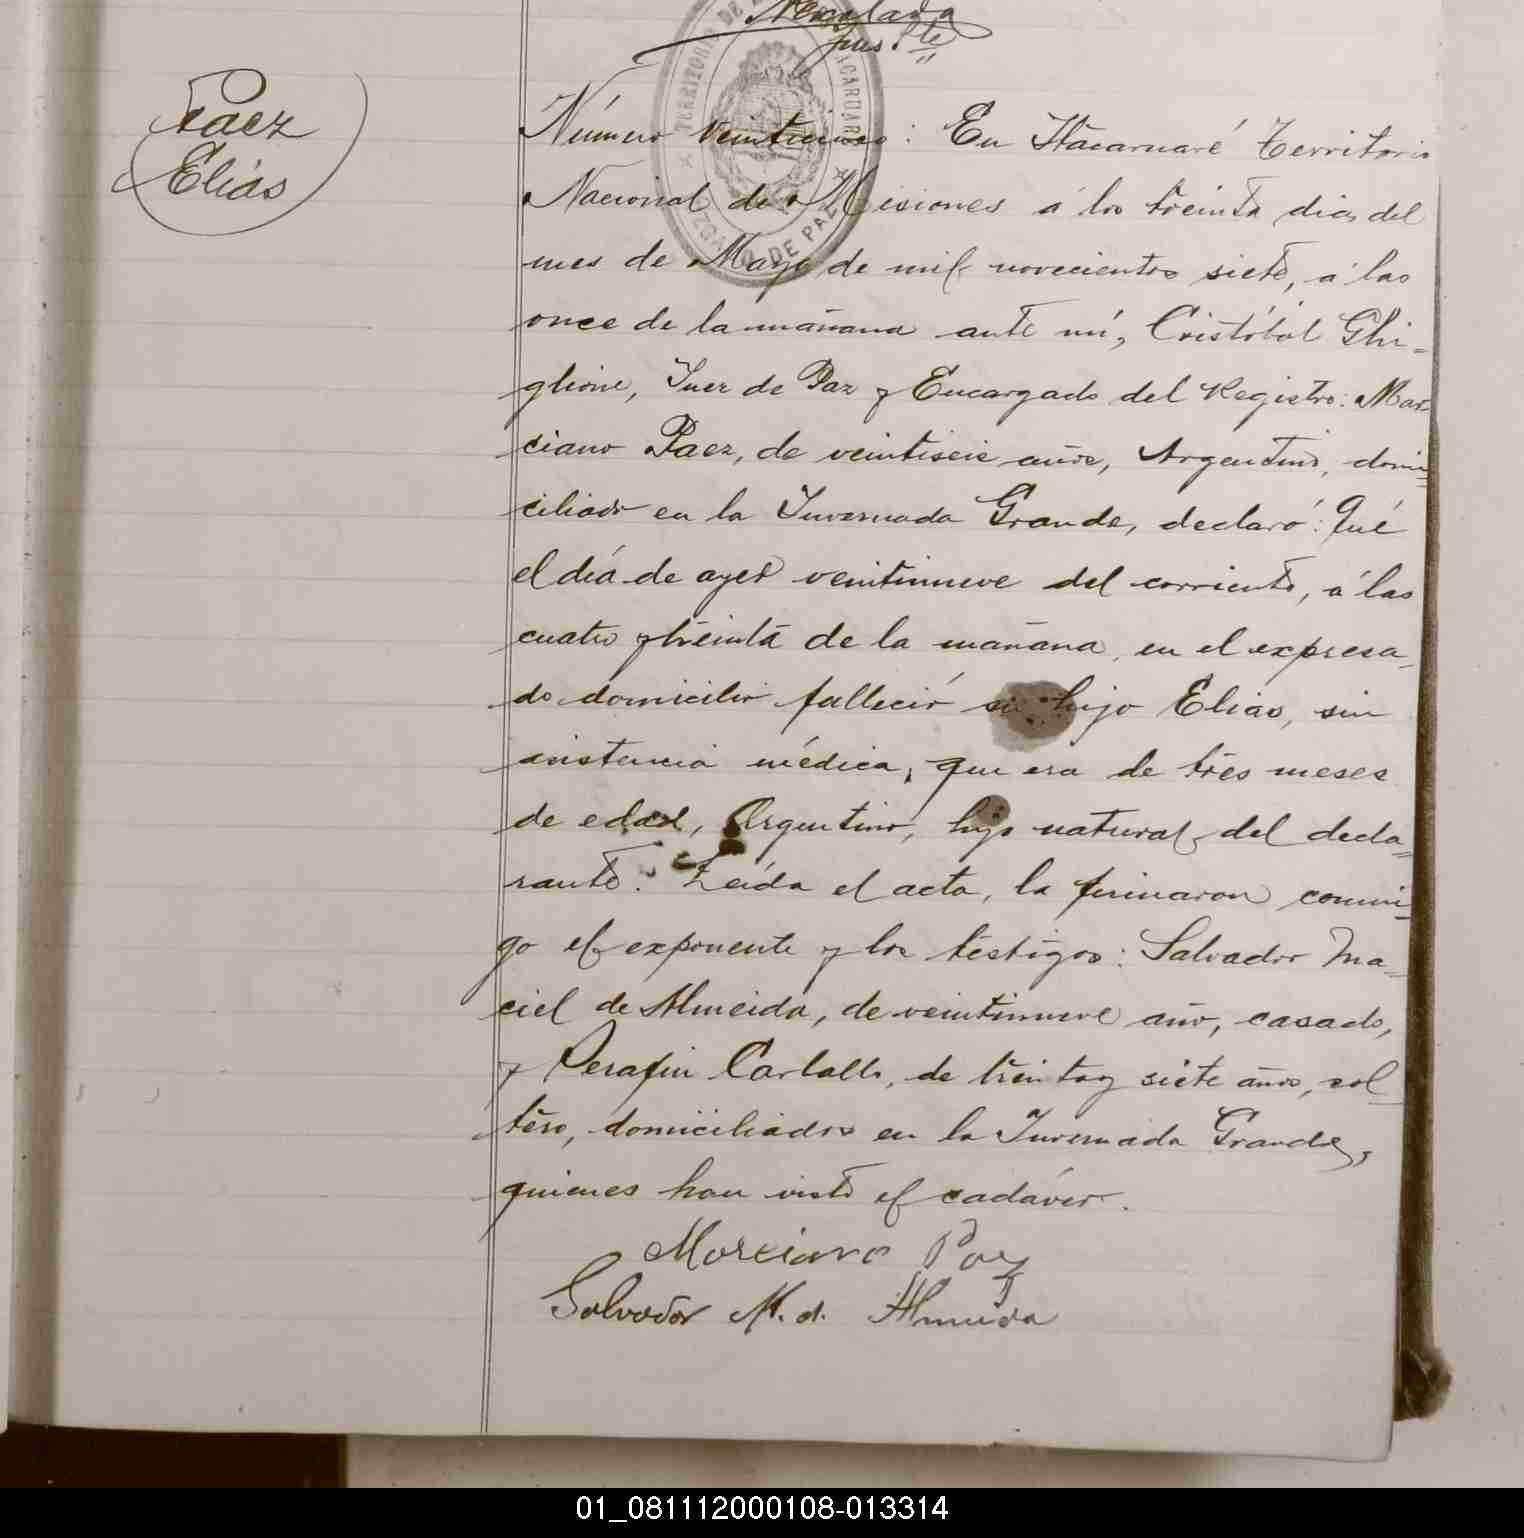 TERRITORIO DE
ACARUARE
JUZGADO DE PAZ
Paez
Elías
Número veinticinco: En Itacaruaré Territorio
Nacional de Misiones á los treinta dias del
mes de Mayo de mil novecientos siete, á las
once de la mañana ante mí, Cristóbal Ghi-
glione, Juez de Paz y Encargado del Registro: Mar-
ciano Paez, de veintiseis años, Argentino, domi-
ciliado en la Invernada Grande, declaró: Qué
el día de ayer veintinueve del corriente, á las
cuatro y treinta de la mañana, en el expresa-
do domicilio falleció su hijo Elias, sin
asistencia médica, que era de tres meses
de edad, Argentino, hijo natural del decla-
rante. Leída el acta, la firmaron conmi-
go el exponente y los testigos: Salvador Ma-
ciel de Almeida, de veintinueve año, casado,
y Serafin Carballo, de treinta y siete años, sol-
tero, domiciliados en la Invernada Grande,
quienes han visto el cadáver.
Marciano Paez
Salvador M. d. Almeida
01_081112000108-013314